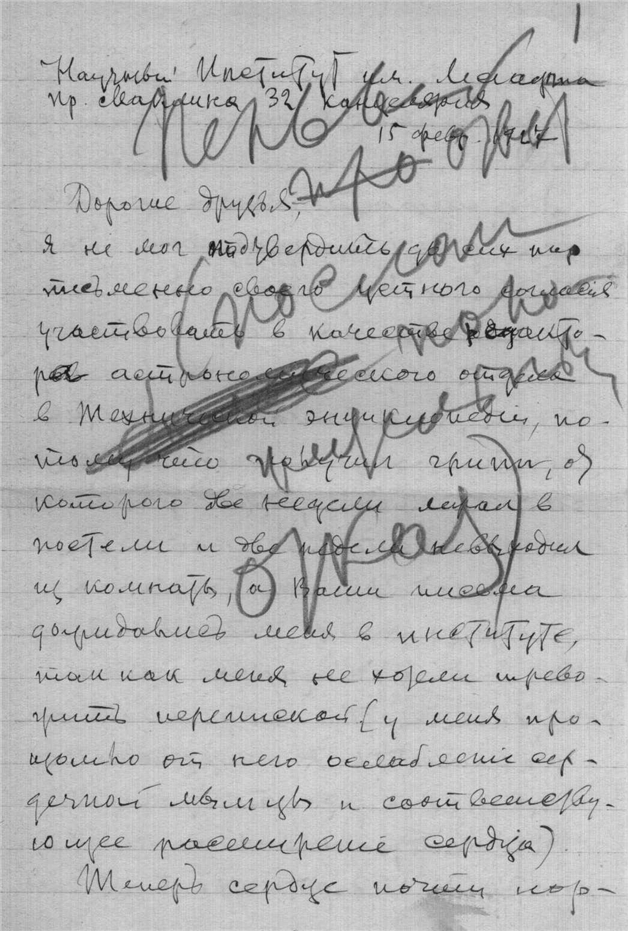 1
Научный Институт им. Лесгафта
пр. Маклина 32 канцелярия
15 февр. 1927
Дорогие друзья,
я не мог подтвердить до сих пор
письменно своего устного согласия
участвовать в качестве редакто-
ра астрономического отдела
в Технической энциклопедии, по-
тому что получил грипп, от
которого две недели лежал в
постели и две недели не выходил
из комнаты, а Ваши письма
дожидались меня в институте,
так как меня не хотели трево-
жить перепиской (у меня про-
изошло от него ослабление сер-
дечной мышцы и соответству-
ющее расширение сердца).
Теперь сердце почти нор-